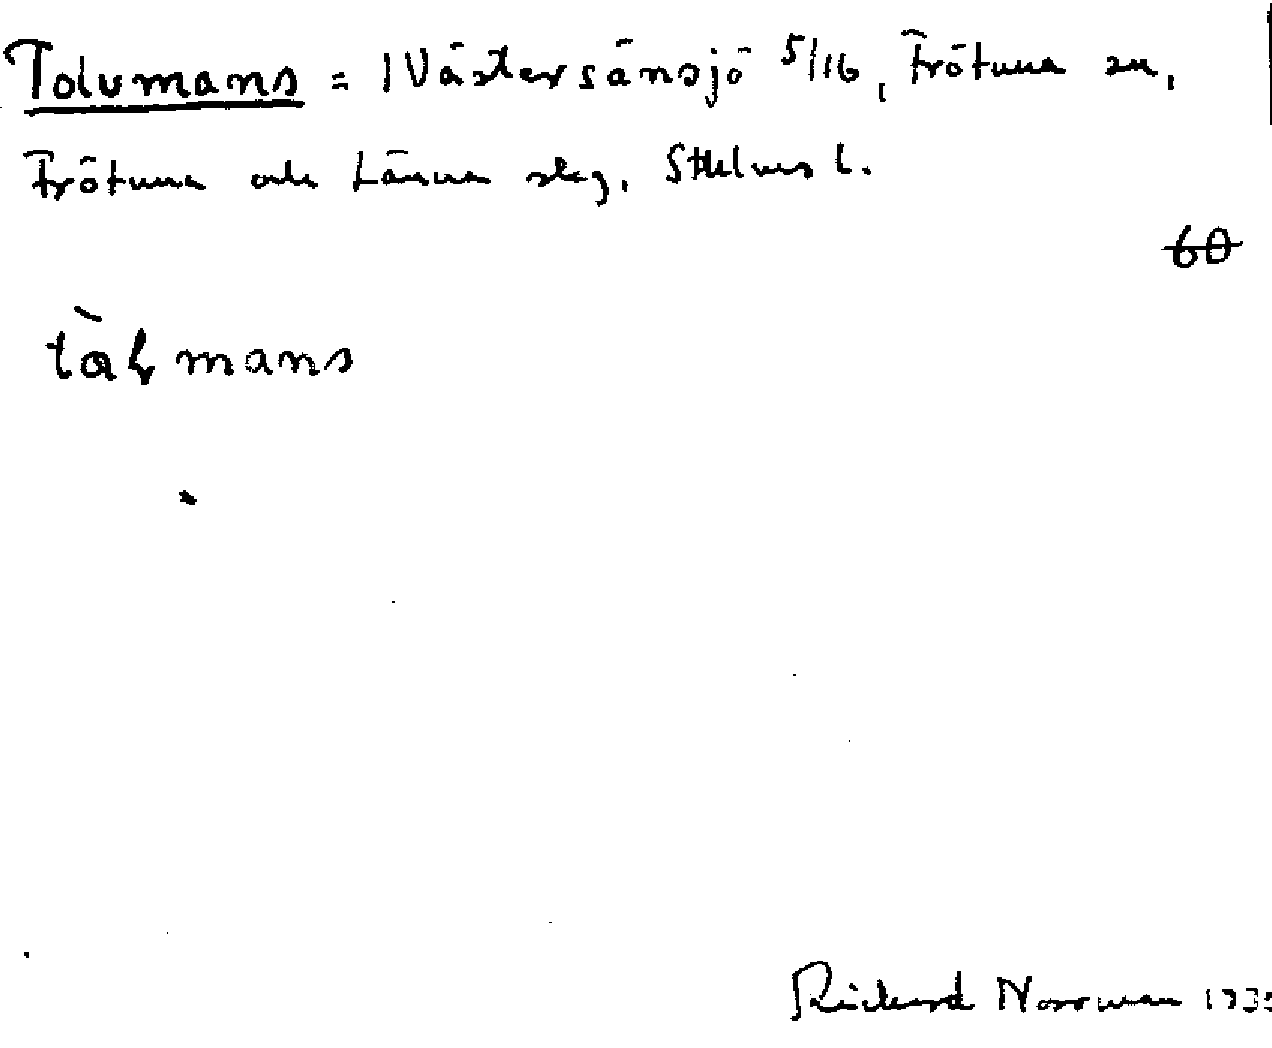 Tolvmans = 1 Västersänsjö 5/16, Frötuna sn,
Frötuna och Länna skg, Sthlms l.
60
tàlvmans
Rickard Norrman 193